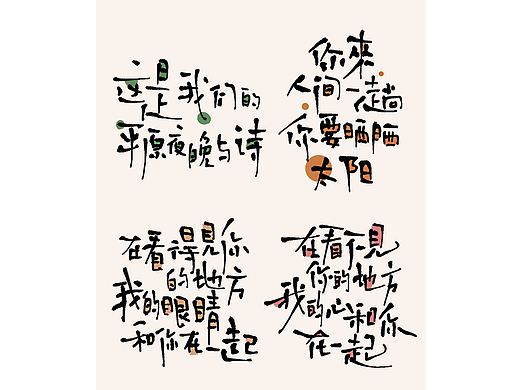 这是我们的
平原夜晚与诗
你来
人间一趟
你要晒晒
太阳
在看得見你
的地方
我的眼睛
和你在一起
在看不見
你的地方
我的心和你
在一起